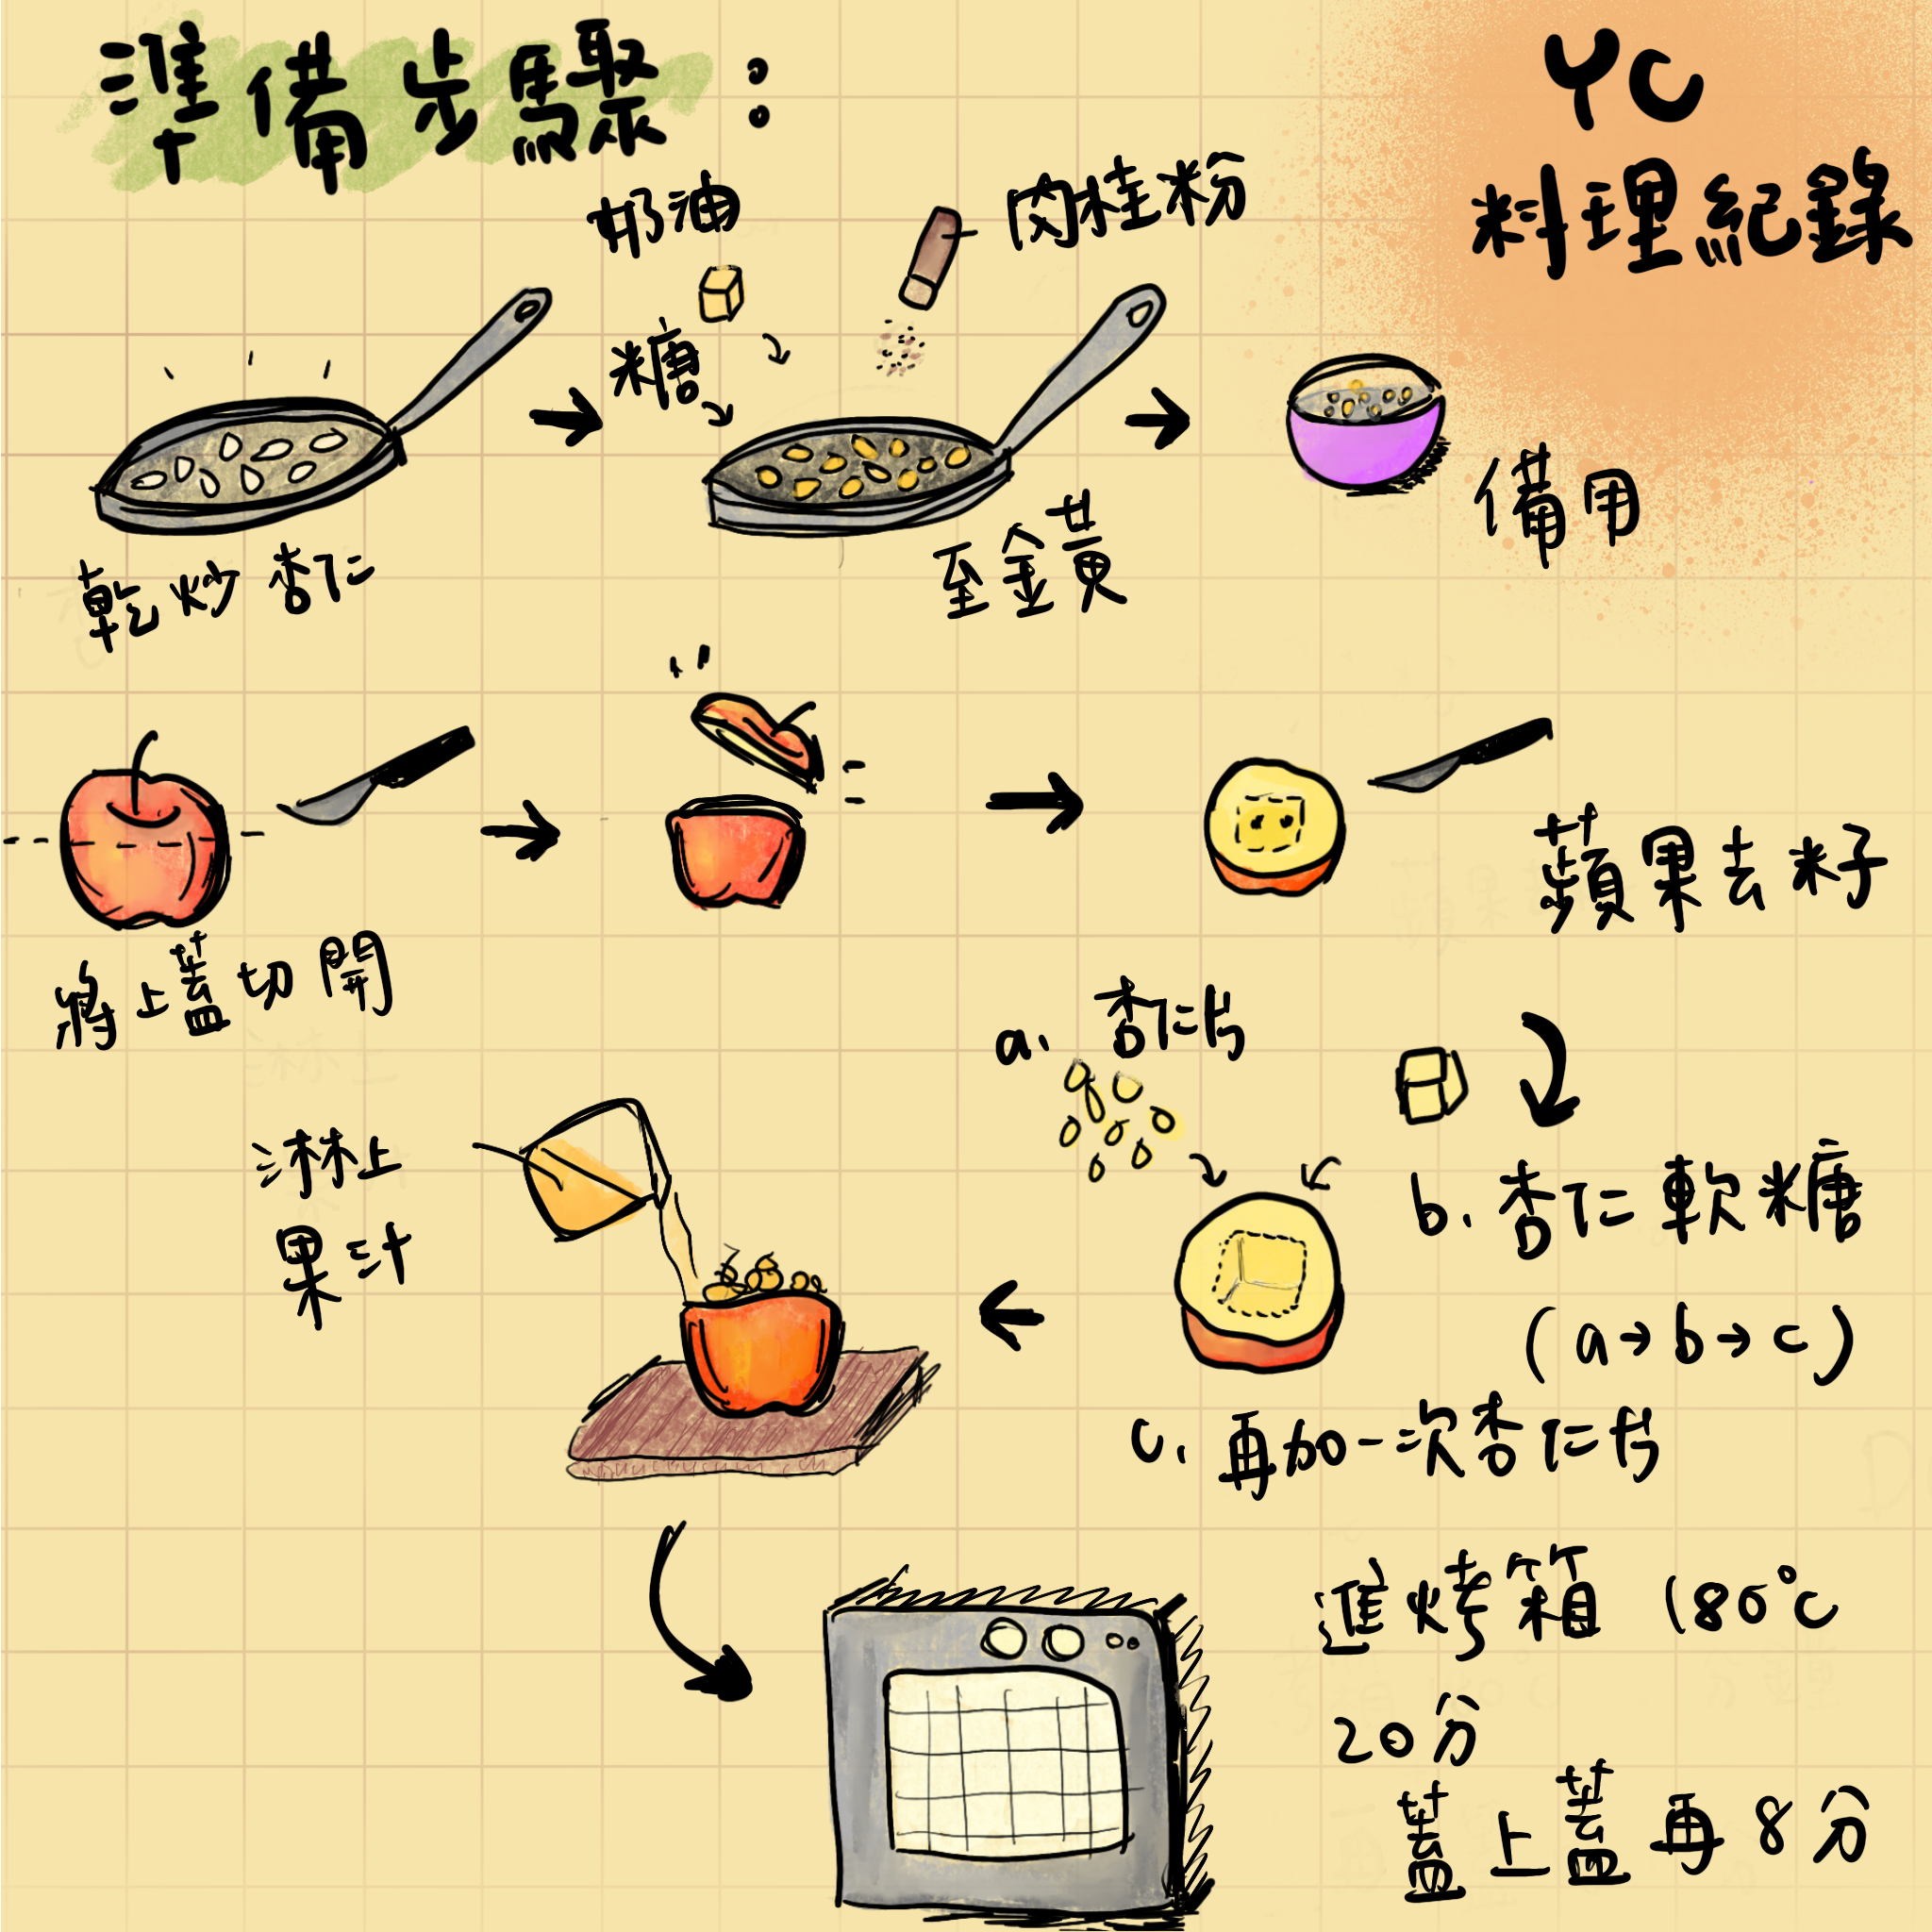 準備步驟：
YC
料理紀錄
奶油
肉桂粉
糖
乾炒杏仁
至金黃
備用
將上蓋切開
蘋果去籽
a. 杏仁片
b. 杏仁軟糖
(a→b→c)
c. 再加一次杏仁片
淋上
果汁
進烤箱 180°C
20分
蓋上蓋再8分